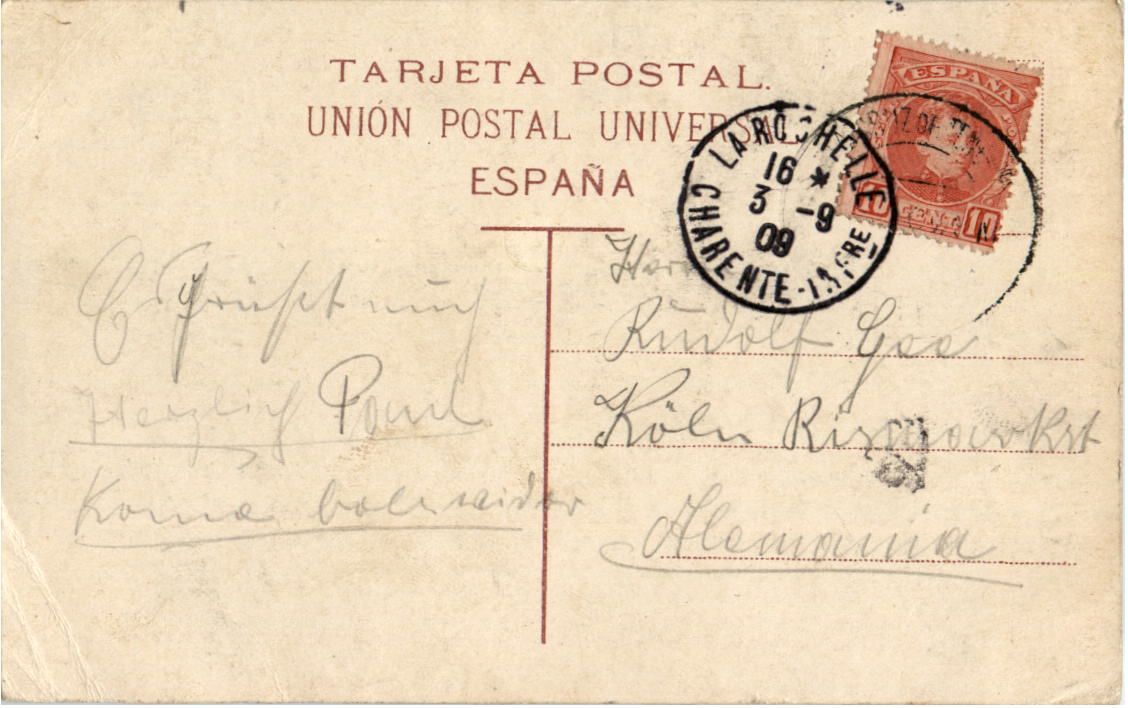 TARJETA POSTAL.
UNIÓN POSTAL UNIVERSAL
ESPAÑA
ESPAÑA
10 CENT 10
LA ROCHELLE
16 *
3 -9
09
CHARENTE-INFRE
Es Grüßt
Herzlich Paul
Herrn
Rudolf
Köln Bismarkst
Alemania